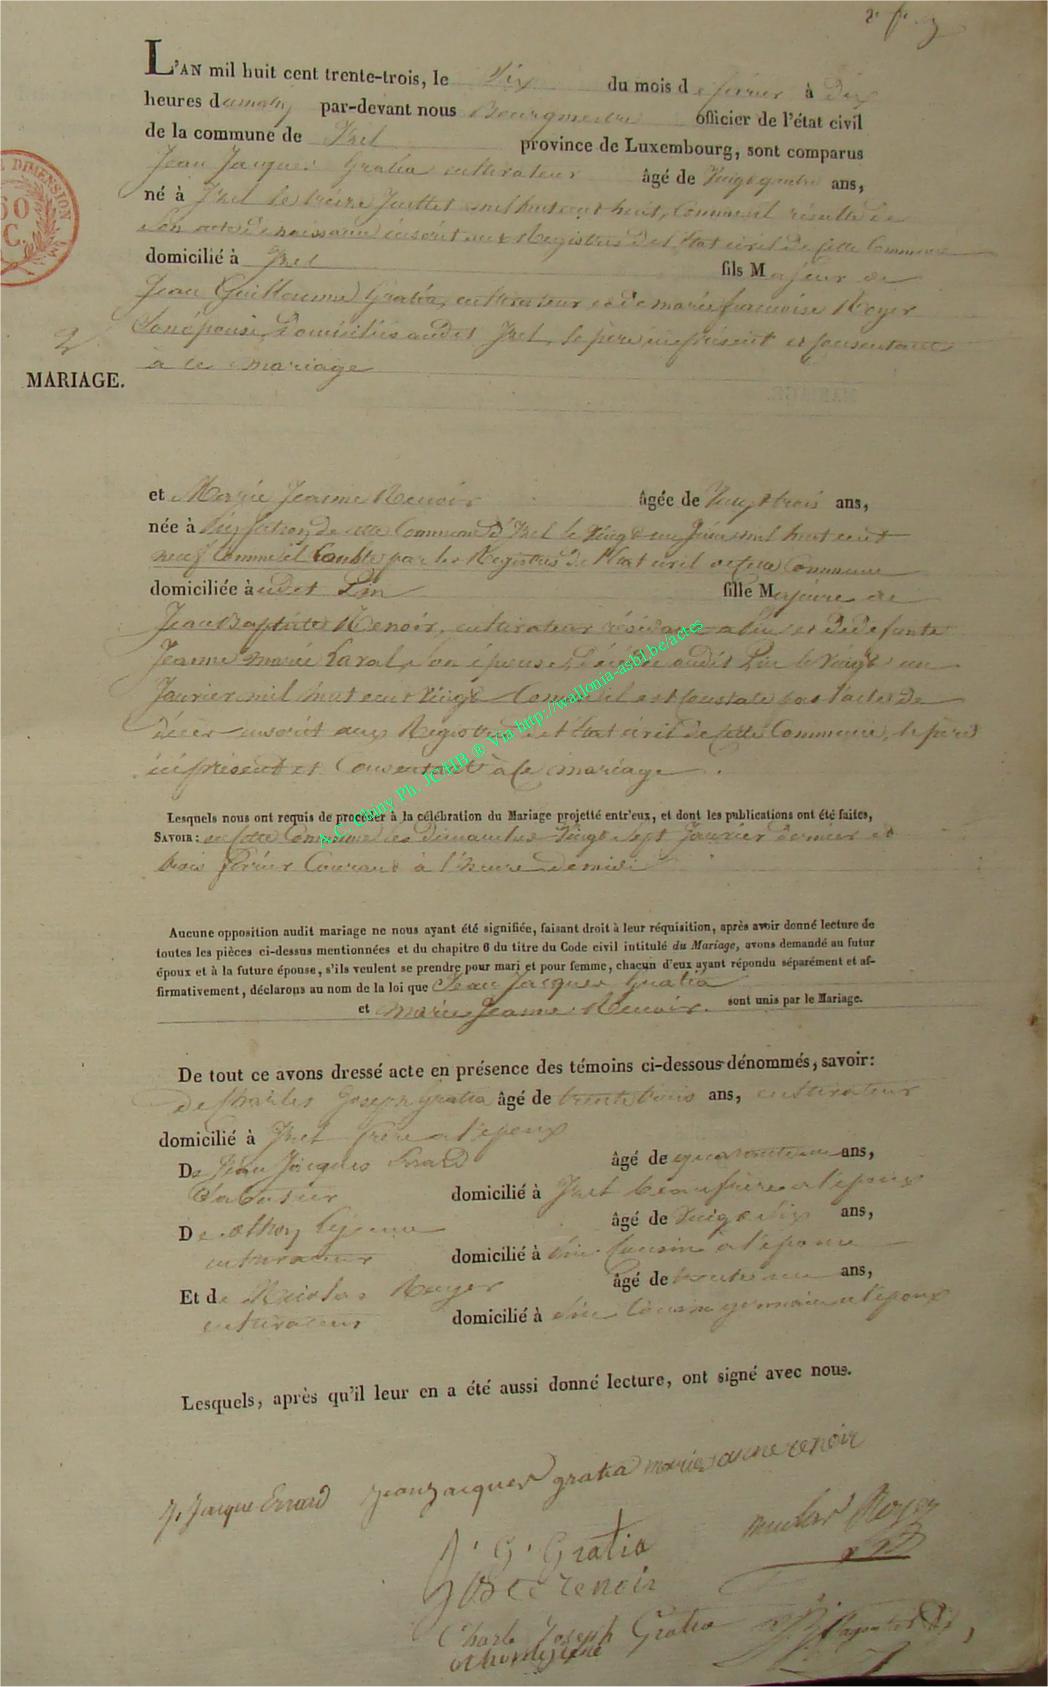 L'AN mil huit cent trente-trois, le Dix du mois de février à Dix
heures du matin par-devant nous Bourgmestre officier de l'état civil
de la commune de Izel province de Luxembourg, sont comparus
Jean Jacques Gratia cultivateur âgé de Vingt quatre ans,
né à Izel le treize Juillet mil huit cent huit, Comme il résulte de
Son acte de naissance inscrit aux Registres de l'état civil de cette Commune
domicilié à Izel fils Majeur de
Jean Guillaume Gratia, cultivateur et de marie françoise Royer
Son épouse, Domiciliés audit Izel, le père ici présent et Consentant
à ce mariage
2
MARIAGE.
et Marie Jeanne Renoir âgée de Vingt trois ans,
née à Pin, Section de cette Commune d'Izel le Vingt un Juin mil huit cent
neuf Comme il Conste par les Registres de l'état civil de cette Commune
domiciliée audit Pin fille Majeure de
Jean Baptiste Renoir, cultivateur résidant à Pin et de défunte
Jeanne marie Laval, Son épouse, Décédée audit Pin le Vingt un
Janvier mil huit cent Vingt Comme il est Constaté par l'acte de
décès inscrit aux Registres de l'état civil de Cette Commune, le père
ici présent et Consentant à Ce mariage.
Lesquels nous ont requis de procéder à la célébration du Mariage projetté entr'eux, et dont les publications ont été faites,
SAVOIR: en Cette Commune les dimanches Vingt Sept Janvier dernier et
trois février Courant à l'heure de midi
Aucune opposition audit mariage ne nous ayant été signifiée, faisant droit à leur réquisition, après avoir donné lecture de
toutes les pièces ci-dessus mentionnées et du chapitre 6 du titre du Code civil intitulé du Mariage, avons demandé au futur
époux et à la future épouse, s'ils veulent se prendre pour mari et pour femme, chacun d'eux ayant répondu séparément et af-
firmativement, déclarons au nom de la loi que Jean Jacques Gratia
et Marie Jeanne Renoir. sont unis par le Mariage.
De tout ce avons dressé acte en présence des témoins ci-dessous dénommés, savoir:
de Charles Joseph gratia âgé de trente trois ans, cultivateur
domicilié à Izel frère à l'époux
De Jean Jacques Errard âgé de quarante un ans,
domicilié à Izel beau frère à l'époux
De Othon Lejeune âgé de Vingt Six ans,
cultivateur domicilié à Pin Cousin à l'épouse
Et de Nicolas Royer âgé de trente un ans,
cultivateur domicilié à Pin Cousin germain à l'époux
Lesquels, après qu'il leur en a été aussi donné lecture, ont signé avec nous.
J. Jacque Errard Jean Jacques gratia marie Jeanne renoir
J. G. Gratia nicolas Royer
J B renoir
Charle Joseph Gratia
othon lejeune
A.C. Chiny Ph. JCAHB ® Via http://wallonia-asbl.be/actes